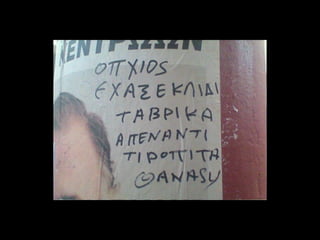 ΚΕΝΤΡΩΩΝ
ΟΠΧΙΟS
ΕΧΑΣΕΚΛΙΔΙ
ΤΑΒΡΙΚΑ
ΑΠΕΝΑΝΤΙ
ΤΙΡΟΠΙΤΑ